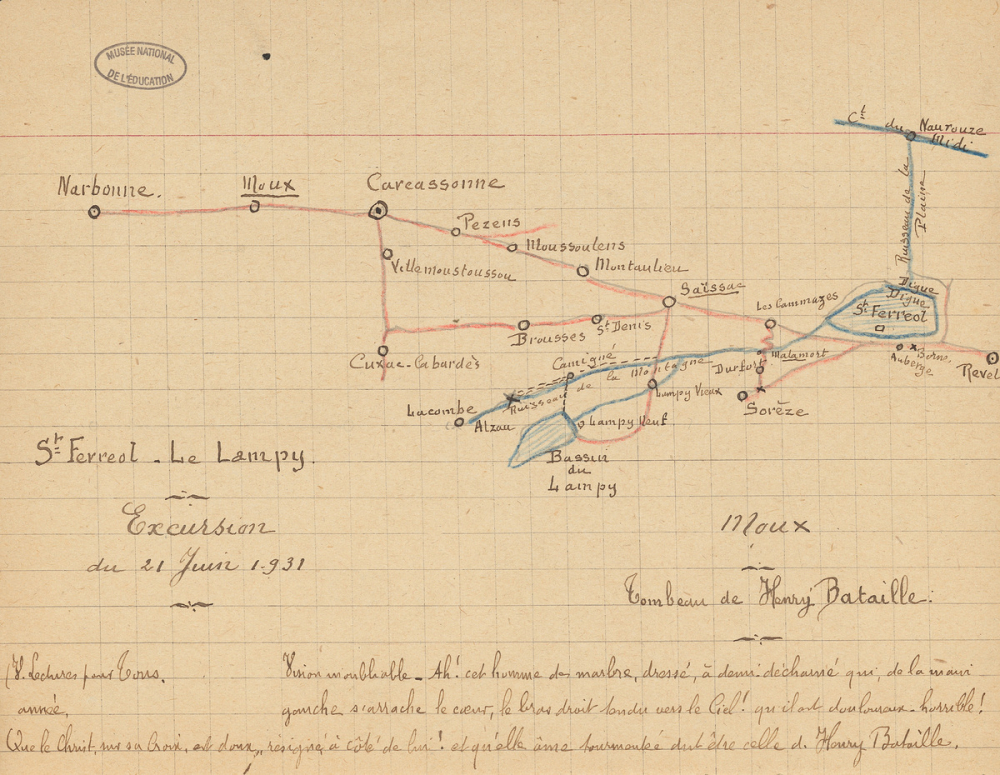 MUSÉE NATIONAL
DE L'ÉDUCATION
Cl du Naurouze
Midi
Ruisseau de la
Plaine
Narbonne.
Moux
Carcassonne
Pezens
Moussoulens
Montaulieu
Villemoustoussou
Saïssac
Les Cammazes
Digue
Digue
St Ferreol
Brousses
St Denis
Cuxac-Cabardès
Camigné
Ruisseau de la Montagne
Durfort
Malamort
Borne.
Auberge
Revel
Lampy Vieux
Sorèze
Lacombe
Alzau
Lampy Neuf
Bassin
du
Lampy
St Ferreol - Le Lampy.
Excursion
du 21 Juin 1931
Moux
Tombeau de Henry Bataille.
(V. Lectures pour Tous.
année.
Vision inoubliable - Ah! cet homme de marbre, dressé, à demi décharné qui, de la main
gauche s'arrache le cœur, le bras droit tendu vers le Ciel! qu'il est douloureux - horrible!
Que le Christ, sur sa Croix, est doux, résigné à côté de lui! et qu'elle âme tourmentée dut être celle d. Henry Bataille.